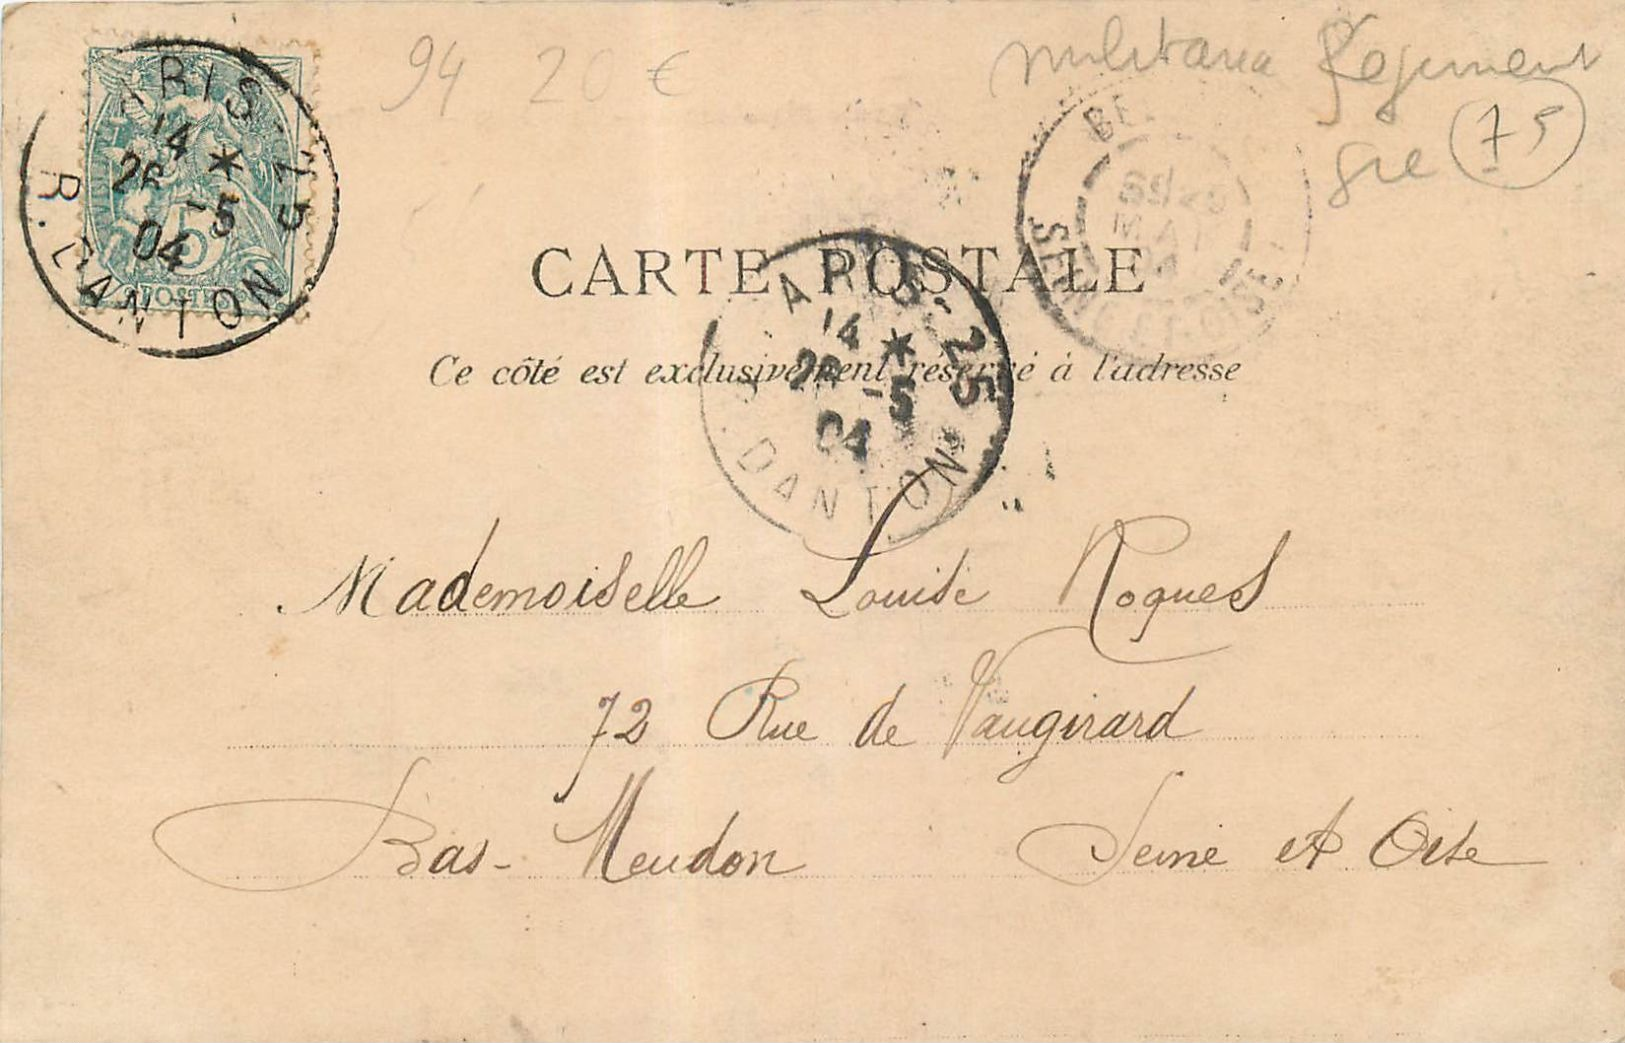 94 20 €
militaria Regiment
gre 75
PARIS-25
14 * 26 -5 04
R. DANTON
5
POSTES
CARTE POSTALE
Ce côté est exclusivement réservé à l'adresse
PARIS-25
14 * 26 -5 04
R. DANTON
MAI
SEINE-ET-OISE
Mademoiselle Louise Roques
72 Rue de Vaugirard
Bas-Meudon Seine et Oise